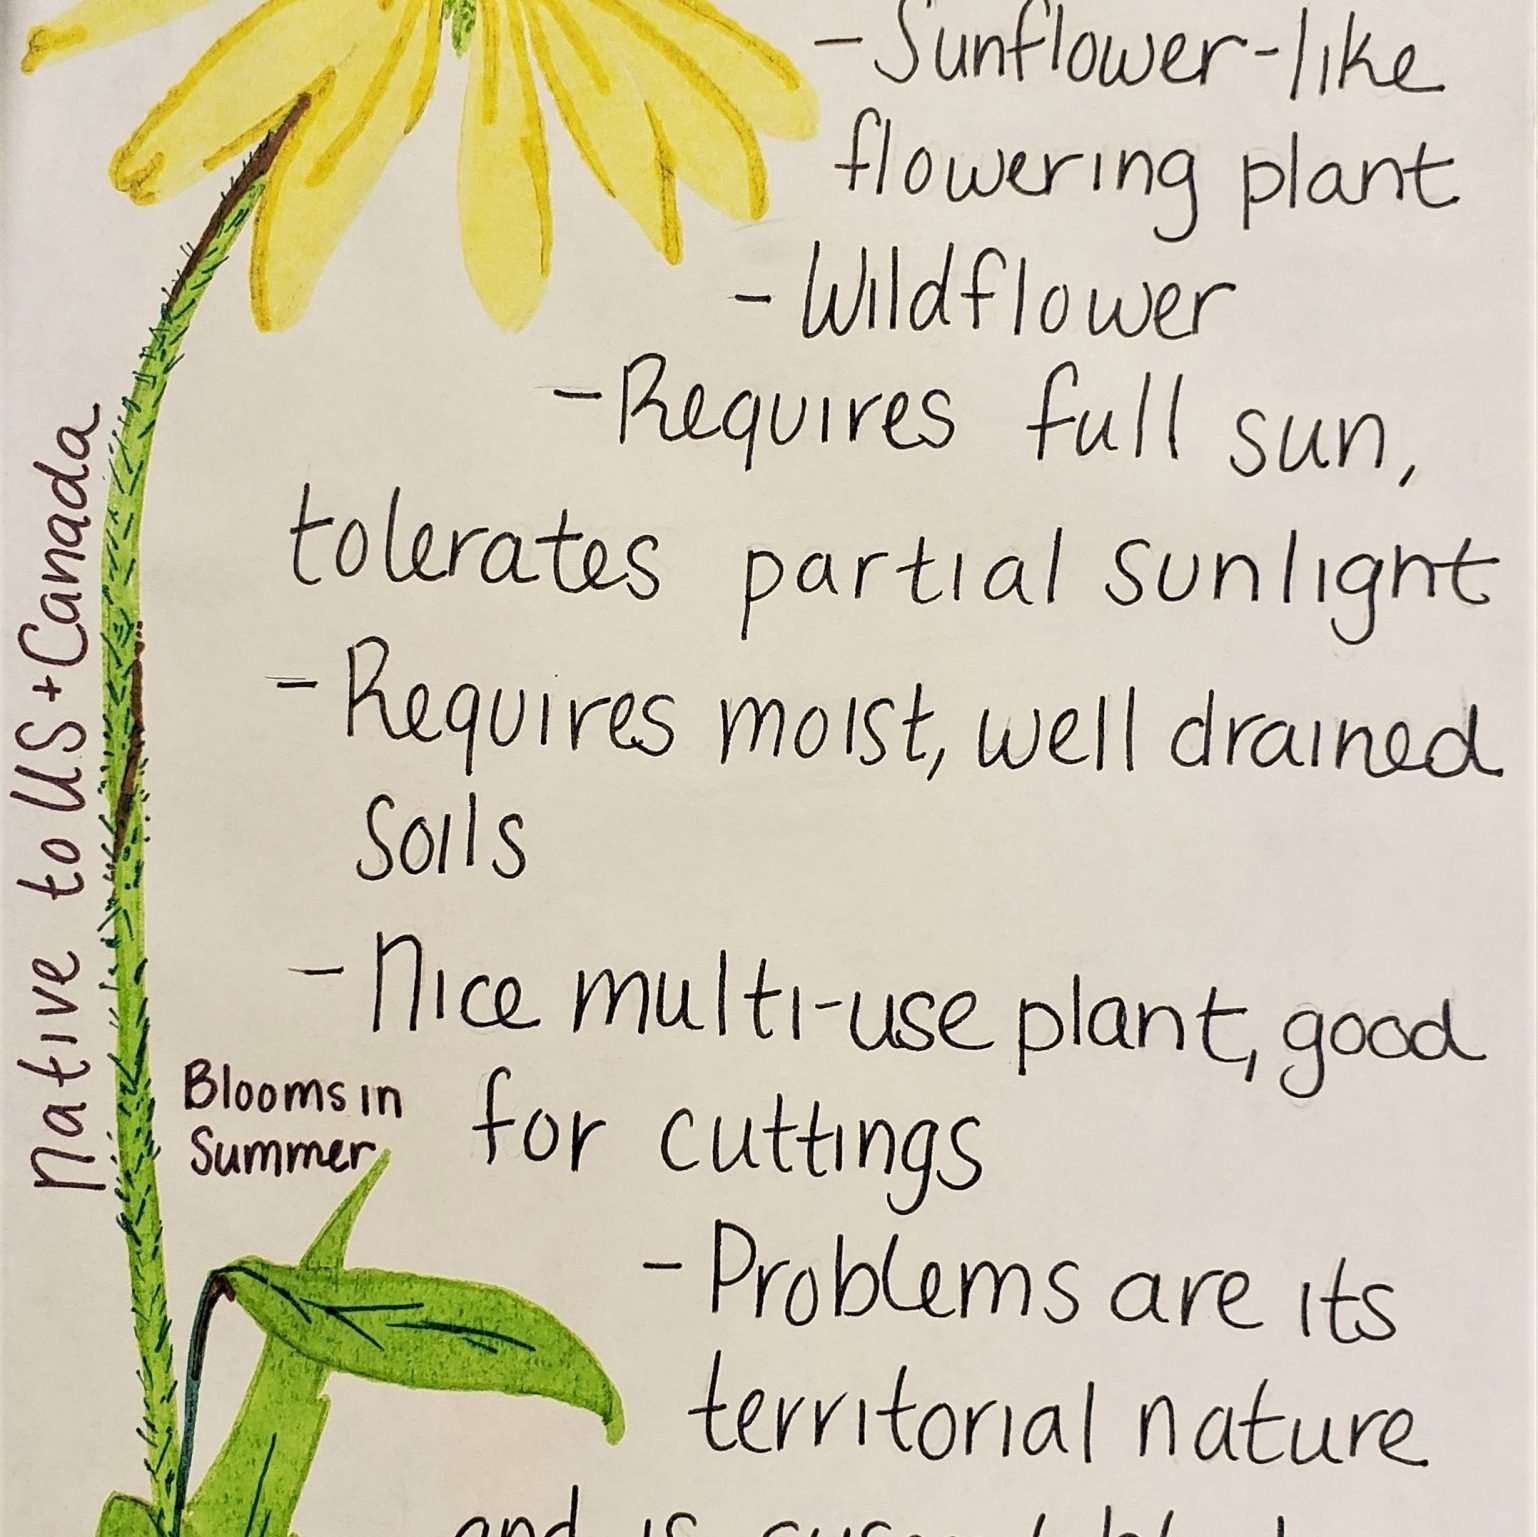 - Sunflower-like
flowering plant
- Wildflower
- Requires full sun,
tolerates partial sunlight
- Requires moist, well drained
soils
- Nice multi-use plant, good
for cuttings
- Problems are its
territorial nature
and is
Native to US + Canada
Blooms in
Summer